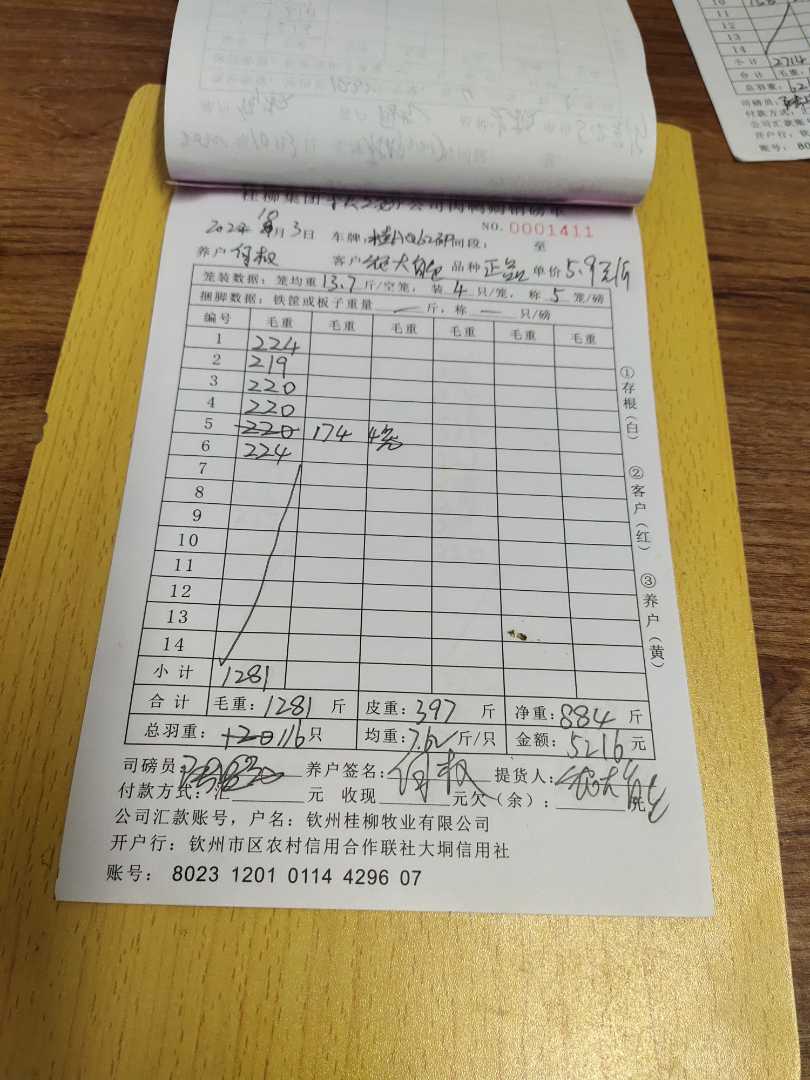 10
11
12
13
14
小计 2714
合计 毛重:
总羽重: 62
司磅员:
付款方式:
公司汇款账
开户行: 钦
账号: 80
NO. 0001411
2024年10月3日 车牌: 时间段: 至
养户 何权 客户 品种 正品 单价 5.9元/斤
笼装数据: 笼均重13.7斤/空笼, 装4只/笼, 称5笼/磅
捆脚数据: 铁筐或板子重量 — 斤, 称 — 只/磅
编号 毛重 毛重 毛重 毛重 毛重 毛重
1 224
2 219
3 220
4 220
5 220 174 4笼
6 224
7
8
9
10
11
12
13
14
小计 1281
合计 毛重: 1281 斤 皮重: 397 斤 净重: 884 斤
总羽重: 120 116 只 均重: 7.62 斤/只 金额: 5216 元
司磅员: 养户签名: 何权 提货人:
付款方式: 汇 元 收现 元欠(余): 元
公司汇款账号, 户名: 钦州桂柳牧业有限公司
开户行: 钦州市区农村信用合作联社大垌信用社
账号: 8023 1201 0114 4296 07
①存根(白)
②客户(红)
③养户(黄)